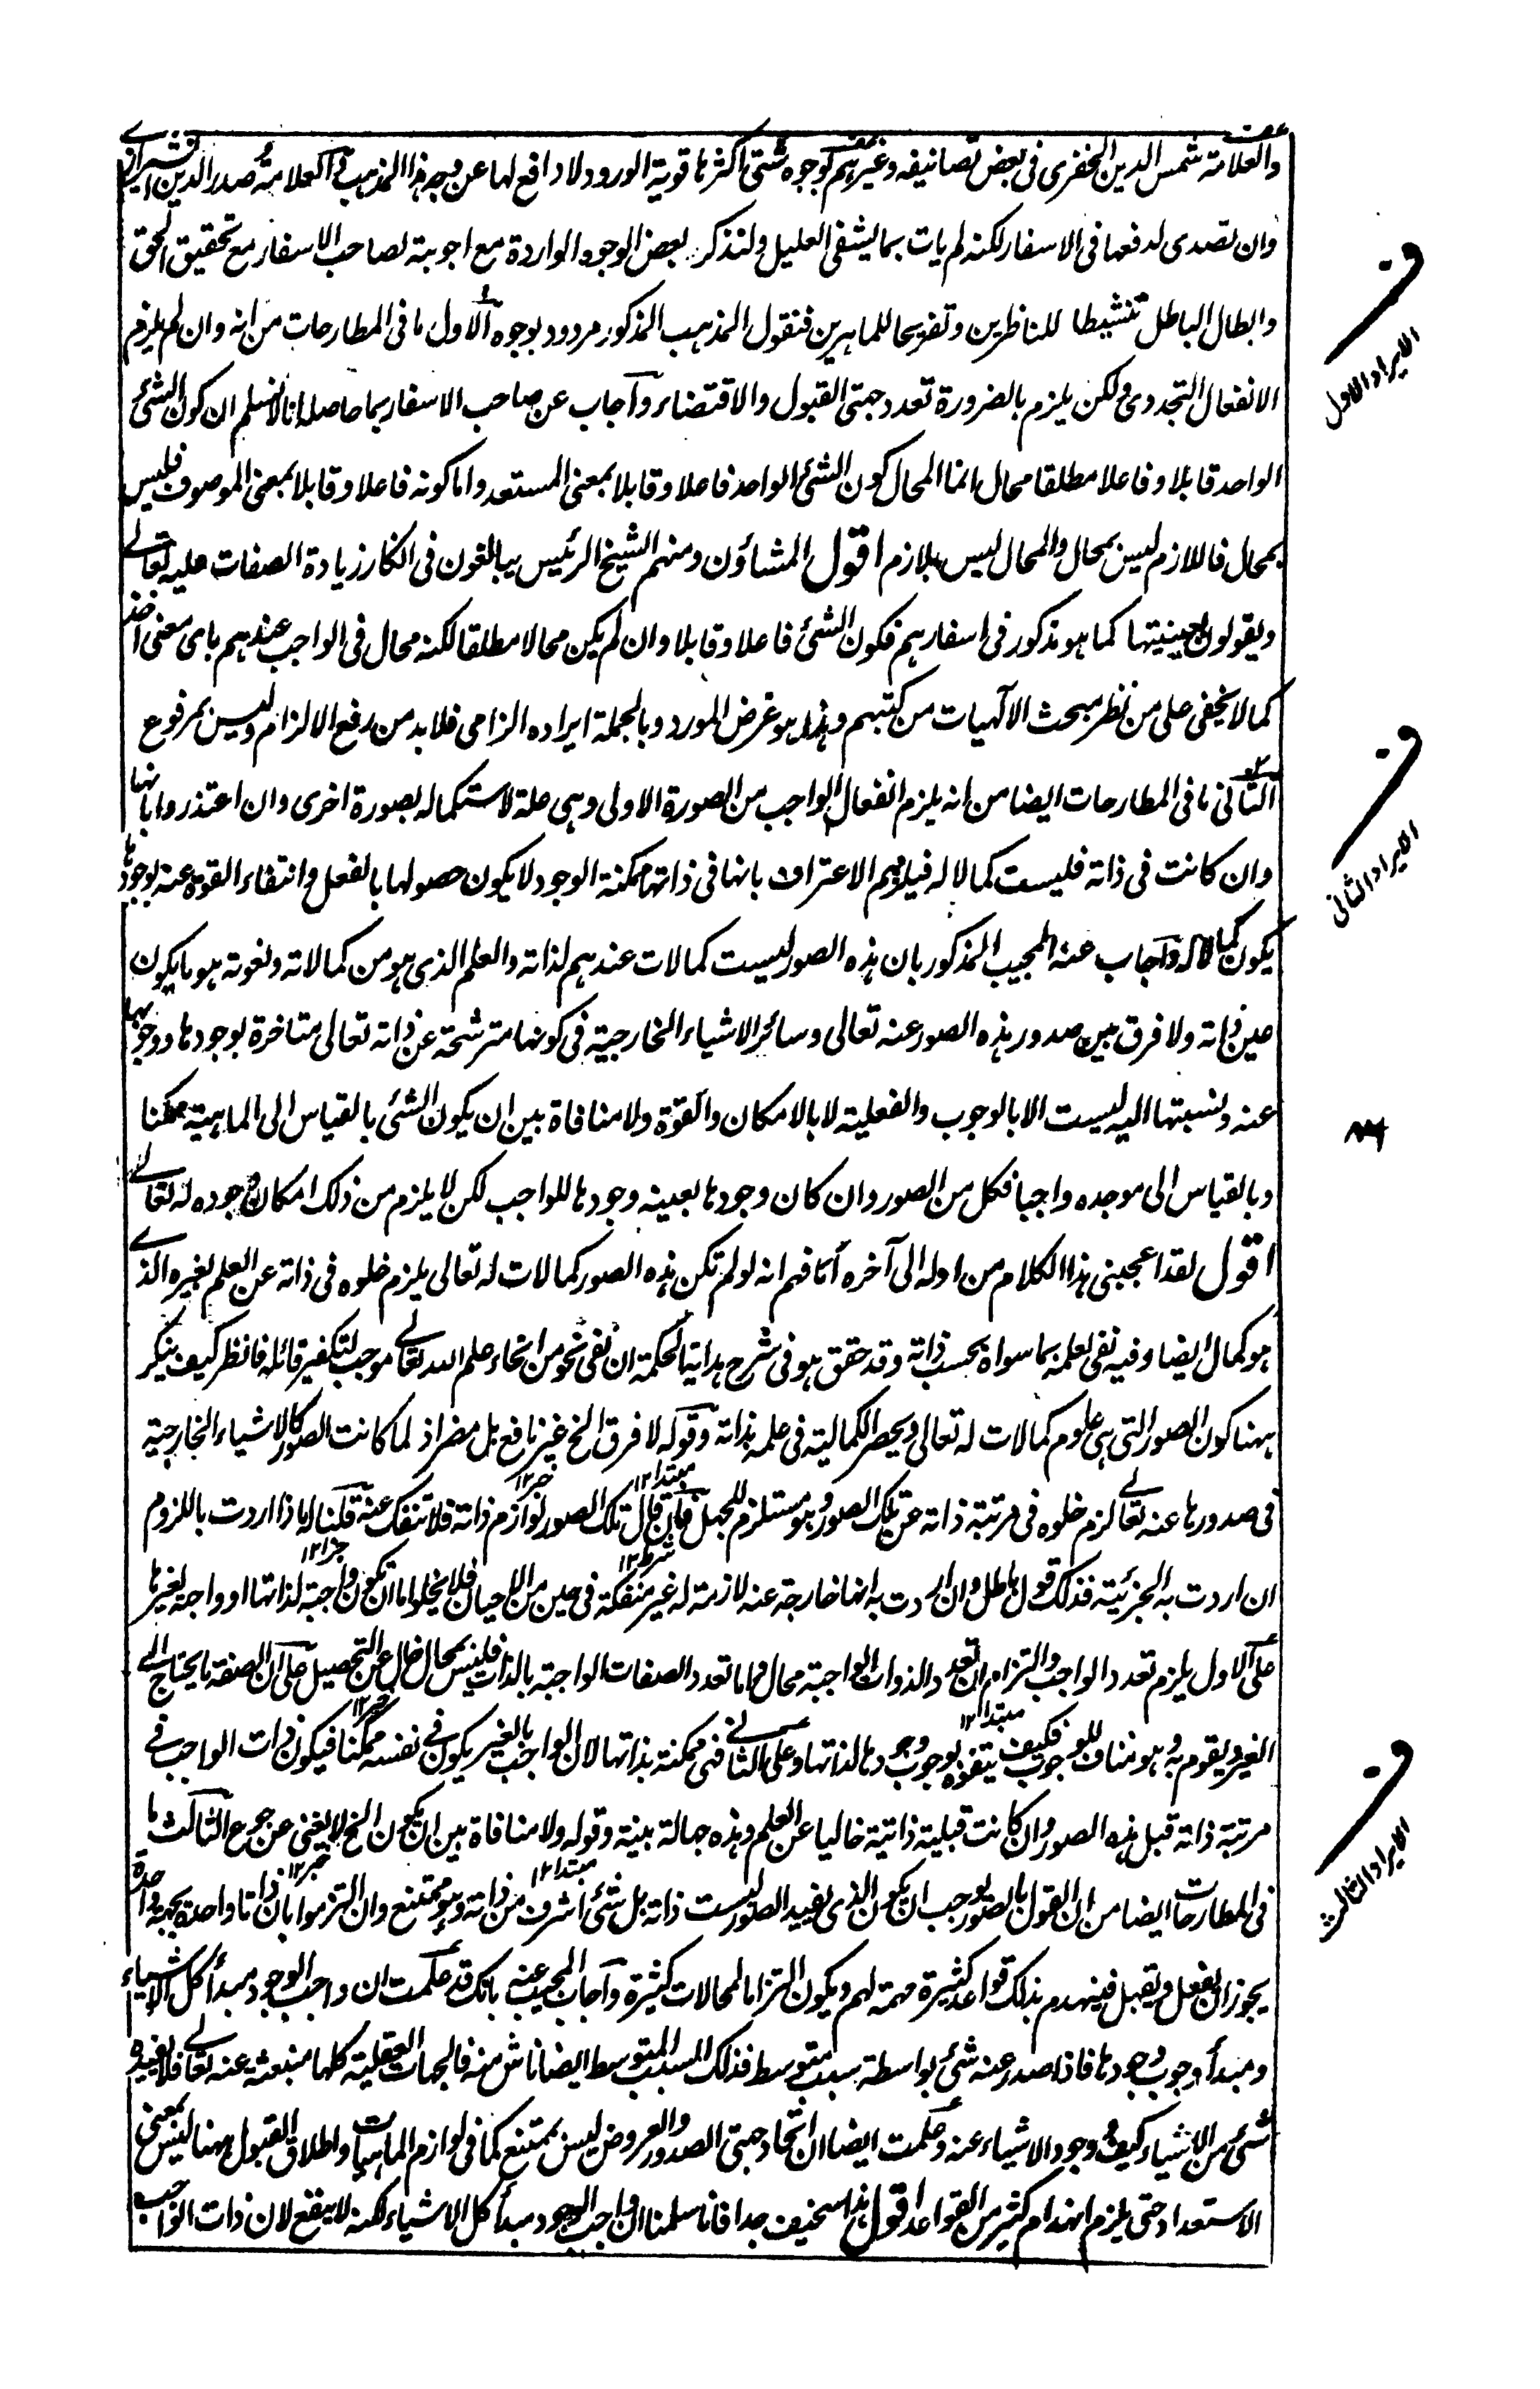 والعلامة شمس الدين الخفرى فى بعض تصانيفه وغيرهم كوجوه شتى اكثرها قوية الورود لا دافع لها عن وجه هذا المذهب والعلامة صدر الدين الشيرازى
وان تصدى لدفعها فى الاسفار لكنه لم يات بما يشفى العليل ولنذكر بعض الوجوه الواردة مع اجوبة لصاحب الاسفار مع تحقيق الحق
وابطال الباطل تنشيطا للناظرين وتفريحا للماهرين فنقول المذهب المذكور مردود بوجوه الاول ما فى المطارحات من انه وان لم يلزم
الانفعال التجددى ولكن يلزم بالضرورة تعدد جهتى القبول والاقتضاء وآجاب عن صاحب الاسفار بما حاصله انا لا نسلم ان كون الشئ
الواحد قابلا وفاعلا مطلقا محال انما المحال كون الشئ الواحد فاعلا وقابلا بمعنى المستعد واما كونه فاعلا وقابلا بمعنى الموصوف فليس
بمحال فاللازم ليس بمحال والمحال ليس بلازم اقول المشاؤن ومنهم الشيخ الرئيس يبالغون فى انكار زيادة الصفات عليه تعالى
ويقولون بعينيتها كما هو مذكور فى اسفارهم فكون الشئ فاعلا وقابلا وان لم يكن محالا مطلقا لكنه محال فى الواجب عندهم باى معنى اخذ
كما لا يخفى على من نظر مبحث الآلهيات من كتبهم وهذا هو غرض المورد وبالجملة ايراده الزامى فلا بد من رفع الالزام وليس بمرفوع
الثانى ما فى المطارحات ايضا من انه يلزم انفعال الواجب من الصورة الاولى وهى علة لاستكماله بصورة اخرى وان اعتذروا بانها
وان كانت فى ذاته فليست كمالا له فيلزمهم الاعتراف بانها فى ذاتها ممكنة الوجود لا يكون حصولها بالفعل وانتفاء القوة عنه بوجودها
يكون كمالا له وآجاب عنه المجيب المذكور بان هذه الصور ليست كمالات عندهم لذاته والعلم الذى هو من كمالاته ونعوته هو ما يكون
عين ذاته ولا فرق بين صدور هذه الصور عنه تعالى وسائر الاشياء الخارجية فى كونها مترشحة عن ذاته تعالى متاخرة بوجودها ووجوبها
عنه ونسبتها اليه ليست الا بالوجوب والفعلية لا بالامكان والقوة ولا منافاة بين ان يكون الشئ بالقياس الى الماهية ممكنا
وبالقياس الى موجده واجبا فكل من الصور وان كان وجودها بعينه وجودها للواجب لكن لا يلزم من ذلك امكان وجوده له تعالى
اقول لقد اعجبنى هذا الكلام من اوله الى آخره أما فهم انه لو لم تكن هذه الصور كمالات له تعالى يلزم خلوه فى ذاته عن العلم بغيره الذى
هو كمال ايضا وفيه نفى لعلمه بما سواه بحسب ذاته وقد حقق هو فى شرح هداية الحكمة ان نفى نحو من انحاء علم الله تعالى موجب لتكفير قائله فانظر كيف ينكر
ههنا كون الصور التى هى علوم كمالات له تعالى ويحصر الكمالية فى علمه بذاته وقوله لا فرق الخ غير نافع بل مضر اذ لما كانت الصور كالاشياء الخارجية
مبتدا ١٢ خبر ١٢
فى صدورها عنه تعالى لزم خلوه فى مرتبة ذاته عن تلك الصور وهو مستلزم للجهل فان قال تلك الصور لوازم ذاته فلا تنفك عنه قلنا له ماذا اردت باللزوم
شرط ١٢ جزا ١٢
ان اردت به الجزئية فذلك قول باطل وان اردت به انها خارجة عنه لازمة له غير منفكة فى حين من الاحيان فلا يخلوا ما ان تكون واجبة لذاتها او واجبة لغيرها
على الاول يلزم تعدد الواجب والتزام ان تعدد الذوات الواجبة محال واما تعدد الصفات الواجبة بالذات فليس بمحال خال عن التحصيل على ان الصفة ما يحتاج الى
مبتدا ١٢ خبر ١٢
الغير ويقوم به وهو مناف للوجوب فكيف يتفوه بوجوب وجودها لذاتها وعلى الثانى فهى ممكنة بذاتها لان الواجب بالغير يكون فى نفسه ممكنا فيكون ذات الواجب فى
مرتبة ذاته قبل هذه الصور وان كانت قبلية ذاتية خاليا عن العلم وهذه جهالة بينة وقوله ولا منافاة بين ان يكون الخ لا يغنى عن جوع الثالث ما
مبتدا ١٢ خبر ١٢
فى المطارحات ايضا من ان القول بالصور يوجب ان يكون الذى يفيد الصور ليست ذاته بل شئ اشرف من ذاته وهو ممتنع وان التزموا بان ذاتا واحدة بجهة واحدة
يجوز ان يفعل ويقبل فينهدم بذلك قواعد كثيرة مهمة لهم ويكون التزاما لمحالات كثيرة وآجاب المجيب عنه بانك قد علمت ان واجب الوجود مبدأ كل الاشياء
ومبدأ وجوب وجودها فاذا صدر عنه شئ بواسطة سبب متوسط فذلك السبب المتوسط ايضا ناش منه فالجهات العقلية كلها منبعثة عنه تعالى فلا يفيده
شئ من الاشياء كيف ووجود الاشياء عنه وعلمت ايضا ان اتحاد جهتى الصدور والعروض ليس بممتنع كما فى لوازم الماهيات واطلاق القبول ههنا ليس بمعنى
الاستعداد حتى يلزم انهدام كثير من القواعد اقول هذا سخيف جدا فانا سلمنا ان واجب الوجود مبدأ كل الاشياء لكنه لا ينفع لان ذات الواجب
ف
الايراد الاول
ف
الايراد الثانى
ف
الايراد الثالث